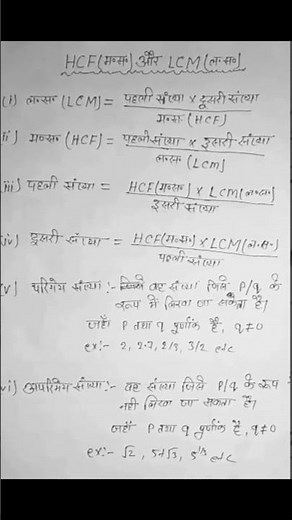 HCF(म०स०) और LCM(ल०स०)
(i) ल०स० (LCM) = पहली संख्या × दूसरी संख्या
म०स० (HCF)
ii) म०स० (HCF) = पहली संख्या × दूसरी संख्या
ल०स० (LCM)
iii) पहली संख्या = HCF(म०स०) × LCM(ल०स०)
दूसरी संख्या
iv) दूसरी संख्या = HCF(म०स०) × LCM(ल.स.)
पहली संख्या
v) परिमेय संख्या :- वह संख्या जिसे P/q के
रूप में लिखा जा सकता है।
जहाँ P तथा q पूर्णांक है, q≠0
ex:- 2, 2.7, 2/3, 3/2 etc
vi) अपरिमेय संख्या :- वह संख्या जिसे P/q के रूप
नही लिखा जा सकता है।
जहाँ P तथा q पूर्णांक है, q≠0
ex:- √2, 5+√3, 5^1/3 etc